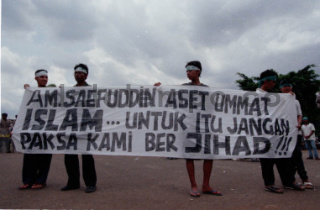 AM.SAEFUDDIN ASET UMMAT
ISLAM ... UNTUK ITU JANGAN
PAKSA KAMI BER JIHAD !!!